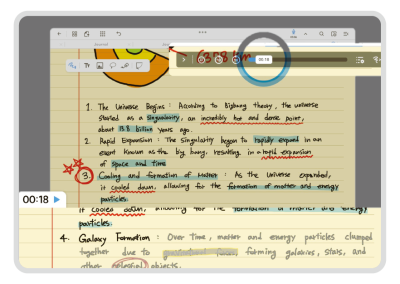 00:18
1. The Universe Begins : According to Bigbang theory, the universe
started as a singularity, an incredibly hot and dense point,
about 13.8 billion years ago.
2. Rapid Expansion : The singularity began to rapidly expand in an
event known as the big bang, resulting in a rapid expansion
of space and time
3. Cooling and formation of Matter : As the Universe expanded,
it cooled down, allowing for the formation of matter and energy
particles.
00:18
it cooled down, allowing for the formation of matter and energy
particles.
4. Galaxy Formation : Over Time, matter and energy particles clumped
together due to forming galaxies, stars, and
other celestial objects.